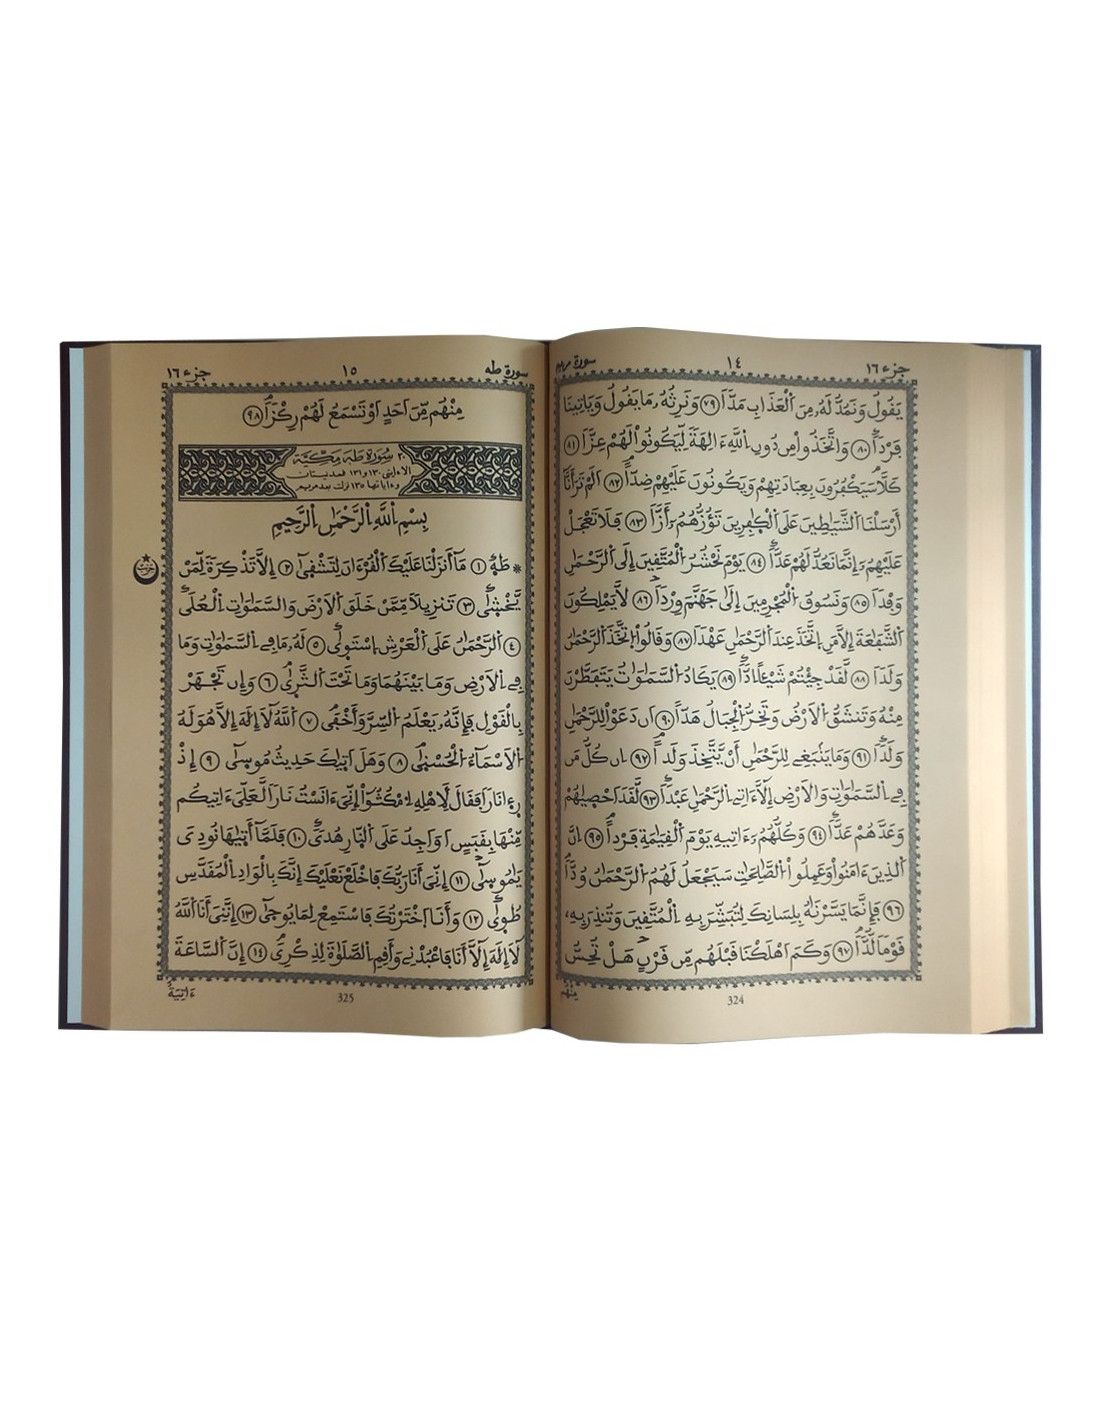 جزء ١٦
١٤
سورة مريم
يَقُولُ وَنَمُدُّ لَهُۥ مِنَ ٱلْعَذَابِ مَدّاٗ ٧٩ وَنَرِثُهُۥ مَا يَقُولُ وَيَاتِينَا
فَرْداٗ ٨٠ وَاتَّخَذُواْ مِن دُونِ اِ۬للَّهِ ءَالِهَةٗ لِّيَكُونُواْ لَهُمْ عِزّاٗ ٨١
كَلَّا سَيَكْفُرُونَ بِعِبَادَتِهِمْ وَيَكُونُونَ عَلَيْهِمْ ضِدّاًۖ ٨٢ اَلَمْ تَرَ أَنَّا
أَرْسَلْنَا اَ۬لشَّيَٰطِينَ عَلَى اَ۬لْكٰ۪فِرِينَ تَؤُزُّهُمُۥ أَزّاٗ ٨٣ فَلَا تَعْجَلْ
عَلَيْهِمُۥ إِنَّمَا نَعُدُّ لَهُمْ عَدّاٗ ٨٤ يَوْمَ نَحْشُرُ اُ۬لْمُتَّقِينَ إِلَى اَ۬لرَّحْمَٰنِ
وَفْداٗ ٨٥ وَنَسُوقُ اُ۬لْمُجْرِمِينَ إِلَىٰ جَهَنَّمَ وِرْداٗ ٨٦ لَّا يَمْلِكُونَ
اَ۬لشَّفَٰعَةَ إِلَّا مَنِ اِ۪تَّخَذَ عِندَ اَ۬لرَّحْمَٰنِ عَهْداٗ ٨٧ وَقَالُواْ اُ۪تَّخَذَ اَ۬لرَّحْمَٰنُ
وَلَداٗ ٨٨ لَّقَدْ جِئْتُمْ شَيْـٔاً اِدّاٗ ٨٩ يَكَادُ اُ۬لسَّمَٰوَٰتُ يَتَفَطَّرْنَ
مِنْهُ وَتَنشَقُّ اُ۬لَارْضُ وَتَخِرُّ اُ۬لْجِبَالُ هَدّاً ٩٠ اَن دَعَوْاْ لِلرَّحْمَٰنِ
وَلَداٗ ٩١ وَمَا يَنۢبَغِے لِلرَّحْمَٰنِ أَنْ يَّتَّخِذَ وَلَداً ٩٢ اِن كُلُّ مَن
فِے اِ۬لسَّمَٰوَٰتِ وَالَارْضِ إِلَّا ءَاتِے اِ۬لرَّحْمَٰنِ عَبْداٗ ٩٣ لَّقَدَ اَحْص۪يٰهُمْ
وَعَدَّهُمْ عَدّاٗ ٩٤ وَكُلُّهُمُۥ ءَاتِيهِ يَوْمَ اَ۬لْقِيَٰمَةِ فَرْداً ٩٥ اِنَّ
اَ۬لذِينَ ءَامَنُواْ وَعَمِلُواْ اُ۬لصَّٰلِحَٰتِ سَيَجْعَلُ لَهُمُ اُ۬لرَّحْمَٰنُ وُدّاٗ
٩٦ فَإِنَّمَا يَسَّرْنَٰهُ بِلِسَانِكَ لِتُبَشِّرَ بِهِ اِ۬لْمُتَّقِينَ وَتُنذِرَ بِهِۦ
قَوْماٗ لُّدّاٗ ٩٧ وَكَمَ اَهْلَكْنَا قَبْلَهُم مِّن قَرْنٍ هَلْ تُحِسُّ
مِنْهُم
324
سورة طه
١٥
جزء ١٦
مِنْهُم مِّنَ اَحَدٍ اَوْ تَسْمَعُ لَهُمْ رِكْزاٗ ٩٨
٢٠ سُورَة طَهَ مَكِّيَّة
الا ءايتي ١٣٠ و ١٣١ فمدنيتان
وءاياتها ١٣٥ نزلت بعد مريم
بِسْمِ اِ۬للَّهِ اِ۬لرَّحْمَٰنِ اِ۬لرَّحِيمِ
* طَه۪ ١ مَآ أَنزَلْنَا عَلَيْكَ اَ۬لْقُرْءَانَ لِتَشْق۪يٰٓ ٢ إِلَّا تَذْكِرَةٗ لِّمَنْ
يَّخْش۪يٰ ٣ تَنزِيلاٗ مِّمَّنْ خَلَقَ اَ۬لَارْضَ وَالسَّمَٰوَٰتِ اِ۬لْعُلَى
٤ اَ۬لرَّحْمَٰنُ عَلَى اَ۬لْعَرْشِ اِ۪سْتَو۪يٰ ٥ لَهُۥ مَا فِے اِ۬لسَّمَٰوَٰتِ وَمَا
فِے اِ۬لَارْضِ وَمَا بَيْنَهُمَا وَمَا تَحْتَ اَ۬لثَّر۪يٰ ٦ وَإِن تَجْهَرْ
بِالْقَوْلِ فَإِنَّهُۥ يَعْلَمُ اُ۬لسِّرَّ وَأَخْفَى ٧ اَ۬للَّهُ لَآ إِلَٰهَ إِلَّا هُوَ لَهُ
اُ۬لَاسْمَآءُ اُ۬لْحُسْن۪يٰ ٨ وَهَلَ اَت۪يٰكَ حَدِيثُ مُوس۪يٰٓ ٩ إِذْ
ر۪ء۪ا نَاراٗ فَقَالَ لِأَهْلِهِ اِ۟مْكُثُوٓاْ إِنِّيَ ءَانَسْتُ نَاراٗ لَّعَلِّيَ ءَاتِيكُم
مِّنْهَا بِقَبَسٍ اَوَ اَجِدُ عَلَى اَ۬لنّ۪ارِ هُدىٗ ١٠ فَلَمَّآ أَت۪يٰهَا نُودِيَ
يَٰمُوس۪يٰٓ ١١ إِنِّيَ أَنَا رَبُّكَ فَاخْلَعْ نَعْلَيْكَ إِنَّكَ بِالْوَادِ اِ۬لْمُقَدَّسِ
طُو۪يٰ ١٢ وَأَنَا اَ۪خْتَرْتُكَ فَاسْتَمِعْ لِمَا يُوح۪يٰٓ ١٣ إِنَّنِيَ أَنَا اَ۬للَّهُ
لَآ إِلَٰهَ إِلَّآ أَنَا فَاعْبُدْنِے وَأَقِمِ اِ۬لصَّلَوٰةَ لِذِكْرِيَ ١٤ إِنَّ اَ۬لسَّاعَةَ
ءَاتِيَةٌ
325